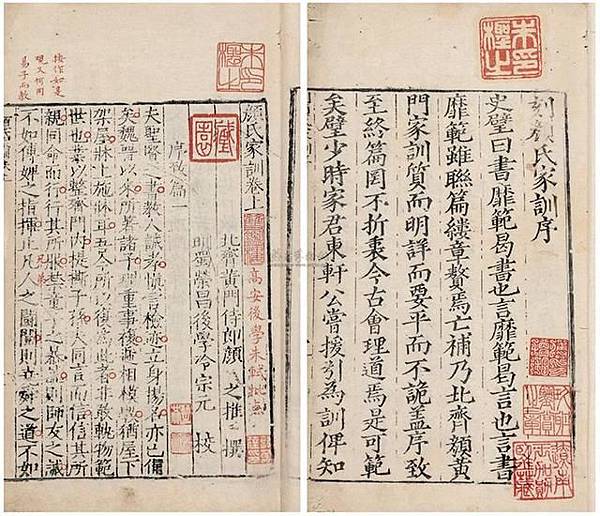 刻顏氏家訓序
史璧曰書靡範曷書也言靡範曷言也言書
靡範雖聯篇縷章贅焉亡補乃北齊顏黃
門家訓質而明詳而要平而不詭蓋序致
至終篇罔不折衷今古會理道焉是可範
矣璧少時家君東軒公嘗援引為訓俾知
顏氏家訓卷上
高安後學朱軾批點
北齊黃門侍郎顏之推撰
明蜀榮昌後學冷宗元校
序致篇一
夫聖賢之書教人誠孝慎言檢迹立身揚名亦已備
矣魏晉以來所著諸子理重事複遞相模斅猶屋下
架屋牀上施牀耳吾今所以復為此者非敢軌物範
世也業以整齊門內提撕子孫夫同言而信信其所
親同命而行行其所服禁童子之暴謔則師友之誡
不如傅婢之指揮止凡人之鬬鬩則堯舜之道不如
兄弟
觀又何用
易子而教